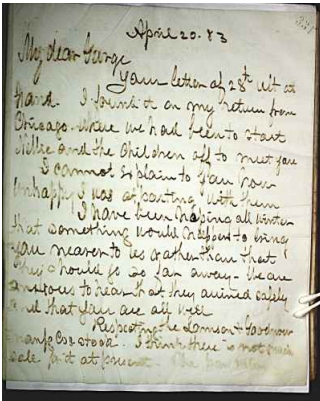 April 20. 83
My dear George
Your letter of 28th ult at
hand. I found it on my return from
Chicago where we had been to start
Nillie and the children off to meet you
I cannot explain to you how
unhappy I was at parting with them
I have been hoping all winter
that something would happen to bring
you nearer to us rather than that
they should go so far away - We are
anxious to hear that they arrived safely
and that you are all well
Respecting the Lamson & Goodnow
Manfg Co's stock. I think there is not much
sale for it at present.